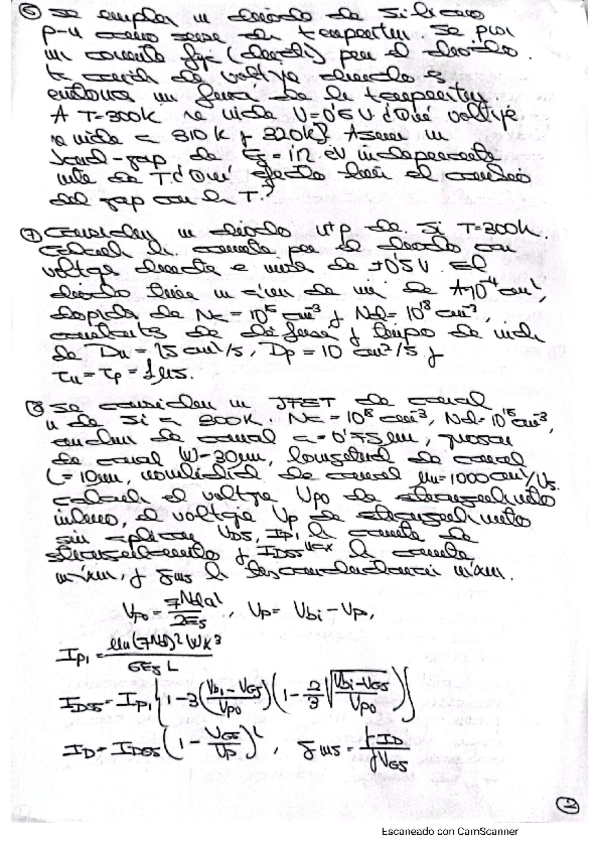 ⑥ Se emplea un diodo de silicio
p-n como sensor de temperatura. Se pone
una corriente fija (directa) por el diodo.
La caída de voltaje directa es
entonces una función de la temperatura.
A T=300K se mide V=0'6V. ¿Qué voltaje
se mide a 310K y 320K? Asume un
band-gap de Eg=1'12 eV independiente
mente de T. ¿Qué efecto tiene el cambio
del gap con la T.?
⑦ Considera un diodo n⁺p de Si T=300K.
Calcula la corriente por el diodo con
voltaje directa e inversa de +0'5V. El
diodo tiene un área de A=10⁻⁴cm²,
dopada de Na = 10¹⁶cm⁻³ y Nd = 10¹⁸cm⁻³,
constante de difusión y tiempo de vida
de Dn = 25cm²/s, Dp = 10 cm²/s y
τn = τp = 1μs.
⑧ Se considera un JFET de canal
n de Si a 300K. Na = 10¹⁸cm⁻³, Nd = 10¹⁵cm⁻³,
anchura de canal a=0'75μm, grosor
de canal W=30μm, longitud de canal
L=10μm, movilidad de canal μn=1000cm²/Vs.
Calcula el voltaje Vpo de estrangulamiento
interno, el voltaje Vp de estrangulamiento
sin aplicar VDS, IP1 la corriente de
estrangulamiento y IDSS max la corriente
máxima, y gms la transconductancia máxim.
Vpo = qNda²/2Es , Vp = Vbi - Vpo
IP1 = μn(qNd)²Wa³/6Es L
IDSS = IP1{1-3(Vbi-VGS/Vpo)(1-2/3√Vbi-VGS/Vpo)}
ID = IDSS(1 - VGS/Vp)² , gms = ∂ID/∂VGS
②
Escaneado con CamScanner